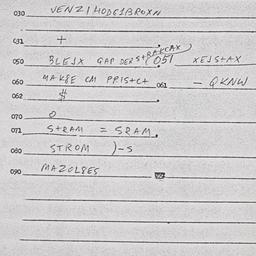 030 VENZIHODE1BROXN
031 +
050 BLEJX GAP DERS+RAKCAX) 051 XEJS+AX
060 MAK8E CM PPIS+C+ 061 - QKNW
062 $
070 O
071 S+RAM = SRAM.
080 STROM )-S
090 MAZOL8ES